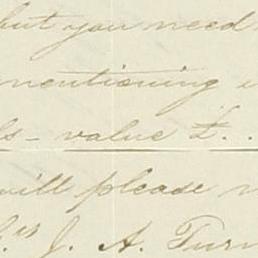 but you need
mentioning
value £..
will please
J. A. Turn